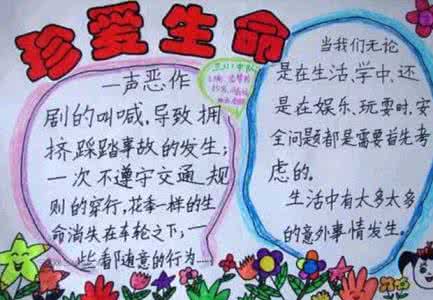 珍爱生命
一声恶作
剧的叫喊,导致拥
挤踩踏事故的发生;
一次不遵守交通规
则的穿行,花季一样的生
命消失在车轮之下;一
些看随意的行为……
当我们无论
是在生活、学中、还
是在娱乐、玩耍时,安
全问题都是需要首先考
虑的。
生活中有太多太多
的意外事情发生。